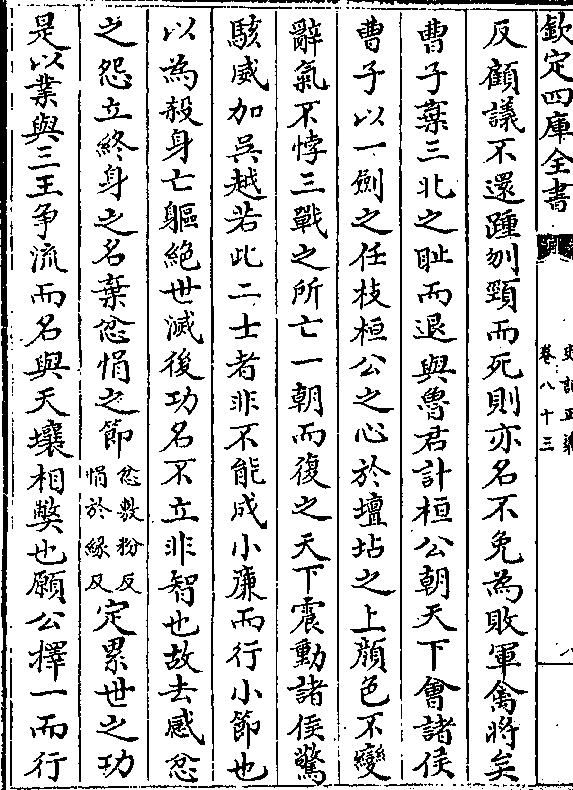 欽定四庫全書
史記正義
卷八十三
八
反顧議不還踵刎頸而死則亦名不免為敗軍禽將矣
曹子棄三北之耻而退與魯君計桓公朝天下會諸侯
曹子以一劍之任枝桓公之心於壇坫之上顔色不變
辭氣不悖三戰之所亡一朝而復之天下震動諸侯驚
駭威加吳越若此二士者非不能成小廉而行小節也
以為殺身亡軀絶世滅後功名不立非智也故去感忿
之怨立終身之名棄忿悁之節忿敷粉反悁於緣反定累世之功
是以業與三王争流而名與天壤相弊也願公擇一而行